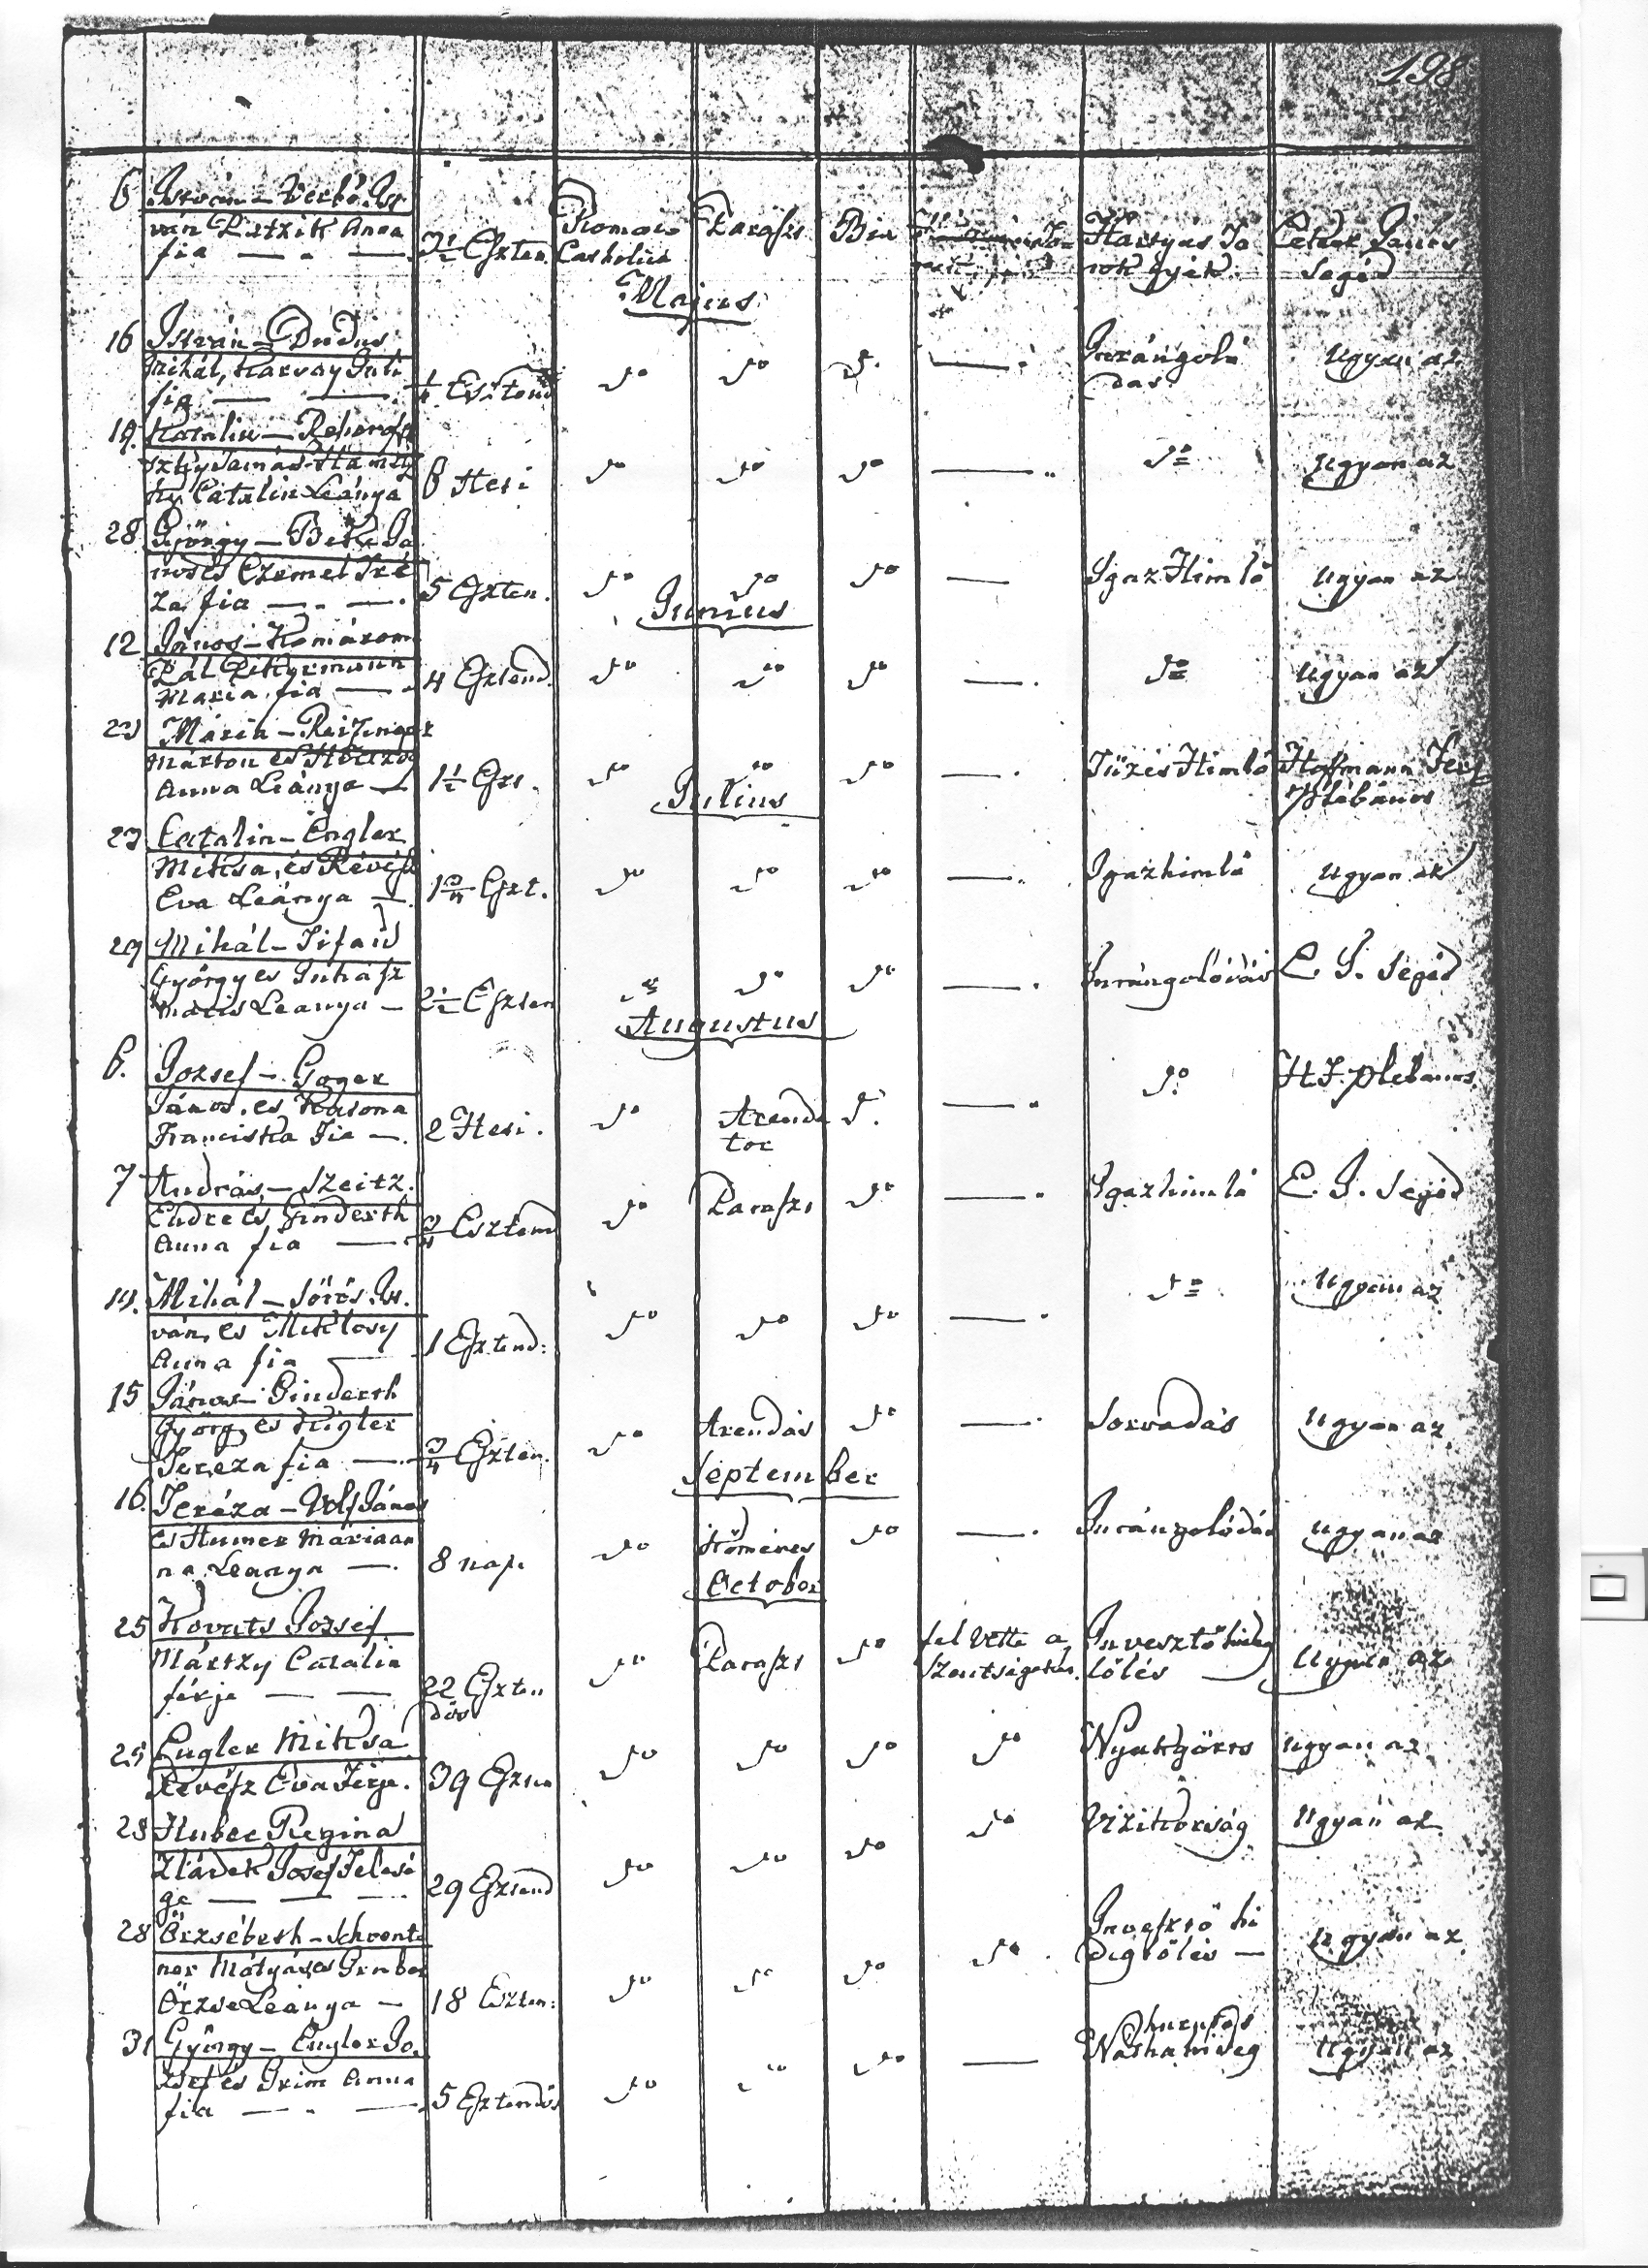 198
6 István – Verbó Ist
ván Pirtzik Anna
fia — 3½ Eszten Romano Catholica Paraszt Bia Hártyás To
rok gyík Czeher János
Segéd
Majus
16 István – Dudus
Mihál, Karvay Juli
fia — ¼ Esztend do do d. — Inrángoló
das Ugyan az
19. Katalin – Rehorofs
szky Tamás
ky Catalin Leánya 6 Heti do do do — do Ugyan az
28 György – Beke Já
nos és Czemel Tré
za fia — 5 Eszten. do do do — Igaz Himlö Ugyan az
Junius
12 János – Komárom
Pál
Maria fia — 4 Esztend. do do do — do Ugyan az
23 Mária – Reizinger
Márton es
Anna Leánya — 1½ Esz. do do do — Tüzes Himlö Hoffmann Ferj
Plébános
Julius
23 Catalin – Engler
Miksa, és Révész
Eva Leánya — 1¾ Eszt. do do do — Igazhimlö Ugyan ak
29 Mihál – Tifan
György es Juhász
Maris Leanya — 2½ Eszten do do do — Inrángolódás C. J. Segéd
Augustus
6. Jozsef – Goger
János, es Katona
Franciska Fia — 2 Heti. do Arenda
tor d. — do H. F. plebanus
7 András – Szeitz.
Endre es Ginderth
Anna fia — ¾ Esztend do Paraszt do — Igazhimlö C. J. Segéd
14. Mihál – Sörös Ist.
ván, es Miklosy
Anna fia — 1 Esztend: do do do — do Ugyan az
15 János – Ginderth
Györg, es Kigler
Tereza fia — ¾ Eszten. do Arendás do — Sorvadás Ugyan az
September
16. Teréza – Volf János
es Humer Mariaan
na Leanya — 8 nap. do Kömives do — Inrángolódás Ugyan az
October
25 Kovats Jozsef
Mártzy Catalin
férje — 22 Eszten
dös do Paraszt do fel vette a
szentségeket. Invesztö hideg
lölés Ugyan az
25 Engler Miksa
Révész Eva Férje. 39 Eszten do do do do Nyakgörts Ugyan az
28 Huber Regina
Zládek Josef Felesé
ge — 29 Esztend do do do do Vizikorság Ugyan az
28 Örzsébeth – Schvent
ner Mátyás, es Gruber
Örzse Leánya — 18 Eszten: do do do do Inveszrö hi
deglölés — Ugyan az
31 György – Engler Jo.
zsef es Grim Anna
fia — 5 Esztendös do do do — hurutos
Náthahideg Ugyan az